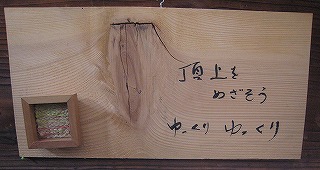 頂上を
めざそう
ゆっくり ゆっくり